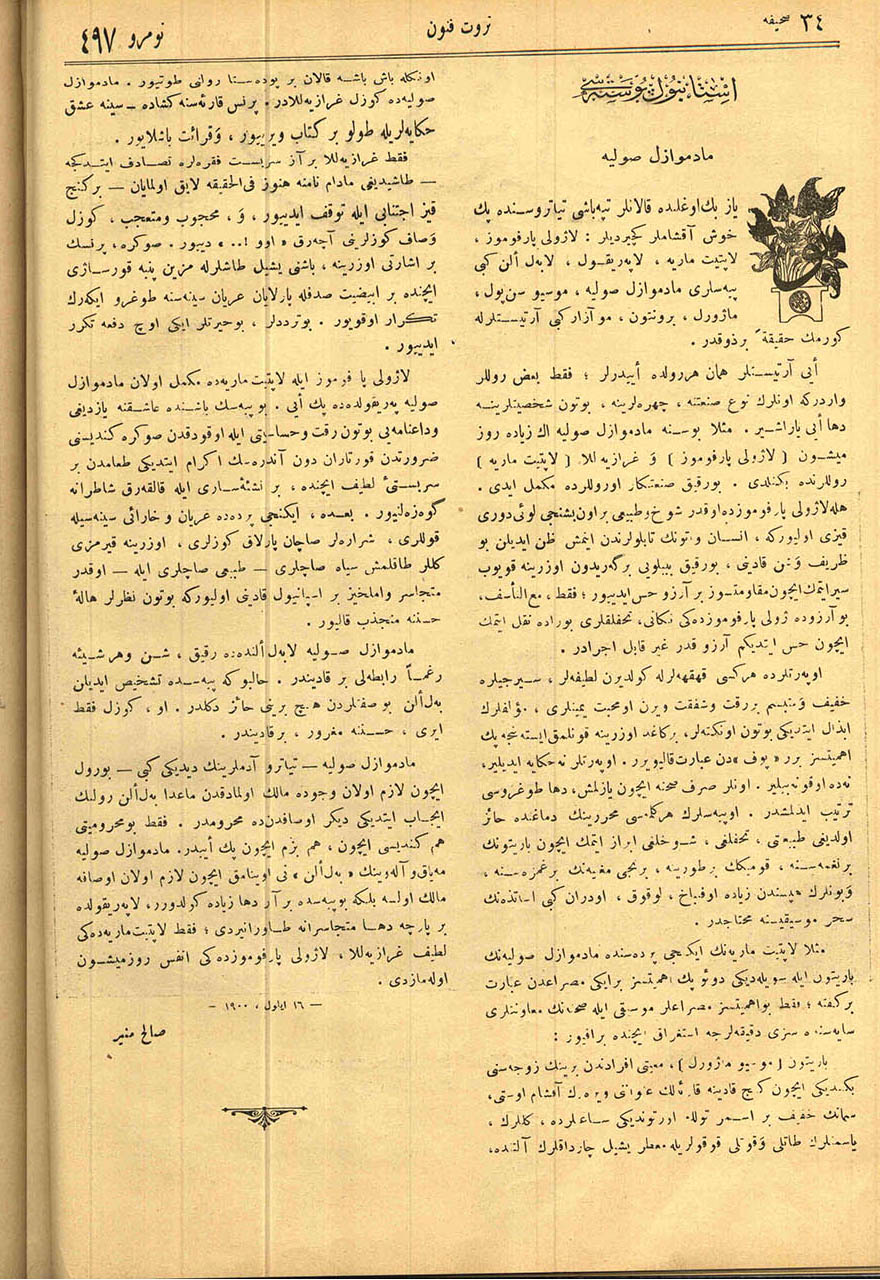 صحیفه ٣٤
ثروت فنون
نومرو ٤٩٧
استانبول پوسته‌سی
مادموازل صولیه
یاز بك‌اوغلنده قالانلر تپه‌باشی تیاتروسنده پك
خوش آقشاملر كچیردیلر : لاژولی پارفوموز ،
لاپتیت ماریه ، لاپه‌ریقول ، لابه‌ل ألن كبی
پیه‌ساری مادموازل صولیه ، موسیو سن‌پول ،
ماژورل ، برونتون ، مو آزار كبی آرتیستلرله
كورمك حقیقةً برذوقدر .
أیی آرتیستلر همان هررولده أییدرلر ؛ فقط بعض روللر
واردركه اونلرك نوع صنعتنه ، چهره‌لرینه ، بوتون شخصیتلرینه
دها أیی یاراشیر . مثلا بوسنه مادموازل صولیه اك زیاده روز
میشون ( لاژولی پارفوموز ) وَ غرازیه‌للا ( لاپتیت ماریه )
روللرنده بكنلدی . بورقیق صنعتكار اوروللرده مكمل ایدی .
هله‌لاژولی پارفوموزده‌اوقدر شوخ‌وطبیعی براون‌بشنجی لوئی‌دوری
قیزی اولیوركه ، انسان واتونك تابلولرندن ایتمش ظن ایدیلن بو
ظریف وَشن قادینی ، بورقیق بیبلویی برگه‌ریدون اوزرینه قویوب
سیرایتمك‌ایچون‌مقاومتسوز بر آرزو حس‌ایدییور ؛ فقط ، مع‌التأسف،
بو آرزوده ژولی پارفوموزده‌كی نكاتی، تحفلقلری بوراده نقل ایتمك
ایچون حس ایتدیكم آرزو قدر غیر قابل اجرادر .
اوپه‌رتلرده هركسی قهقهه‌لرله كولدیرن لطیفه‌لر ، سیرجیلره
خفیف وَمبتسم بررقت وشفقت ویرن اومحبت یمینلری ، مؤلفلرك
ابذال ایتدیكی بوتون اونكته‌لر، بركاغد اوزرینه قونلمق‌ایسته‌نیجه پك
اهمیتسز برر « پوف »دن عبارت‌قالیویرر . اوپه‌رتلر نه‌حكایه ایدیلیر،
نه‌ده اوقونه‌بیلیر . اونلر صرف صحنه ایچون یازلمش، دها طوغروسی
ترتیب ایدلمشدر . اوپیه‌سلرك هركلمه‌سی محررینك دماغنده حائز
اولدیغی طبیعتی ، تحفلغی ، شوخلغی ابراز ایتمك ایچون باریتونك
برنغمه‌سنه ، قومیكك برطورینه ، برنجی مغنیه‌نك برغمزه‌سنه ،
وَبونلرك هپسندن زیاده اوفنباخ ، لوقوق ، اودران كبی اساتذه‌نك
سحر موسیقیسنه محتاجدر .
مثلا لاپتیت ماریه‌نك ایكنجی پرده‌سنده مادموازل صولیه‌نك
باریتون ایله سویله‌دیكی دوئو پك اهمیتسز برایكی مصراعدن عبارت
بركفته ؛ فقط بواهمیتسز مصراعلر موسقی ایله صحنه‌نك معاونتلری
سایه‌سنده سزی دقیقه‌لرجه استغراق ایچنده براقیور :
باریتون ( موسیو ماژورل ) ، معیتی افرادندن برینك زوجه‌سنی
بكلدیكی ایچون كنج قادینه قارئه‌لك عنوانی ویره‌رك آقشام اوستی،
سمانك خفیف بر اسمر توللە اورتوندیكی ساعلرده ، كللرك ،
یاسمنلرك طاتلی وَقوتلی قوقولریله معطر یشیل چارداقلرك آلتنده،
اونكله باش باشه قالان بر پوده‌ستا روانی طوتیور . مادموازل
صولیه‌ده كوزل غرازیه‌للادر . پرنس قارئه‌سنه كشاده ـ سینه عشق
حكایه‌لریله طولو بر كتاب ویرییور ، وَقرائت باشلایور .
فقط غرازیه‌للا بر آز سربست فقره‌لره تصادف ایتدكجه
— طاشیدیغی مادام نامنه هنوز فی‌الحقیقه لایق اولمایان — بركنج
قیز اجتنابی ایله توقف ایدییور ، وَ ، محجوب ومتعجب ، كوزل
وَصاف كوزلرینی آچه‌رق « اوو !.. » دییور . صوكره، پرنسك
بر اشارتی اوزرینه ، باشنی یشیل طاشلرله مزین پنبه قورساژی
ایچنده بر ابیضیت صدفله پارلایان عریان سینه‌سنه طوغرو ایكه‌رك
تكرار اوقویور . بوترددلر ، بوحیرتلر ایكی اوچ دفعه تكرر
ایدییور .
لاژولی پارفوموز ایله لاپتیت ماریه‌ده مكمل اولان مادموازل
صولیه په‌ریقولده‌ده پك أیی . بو پیه‌سك باشنده عاشقنه یازدیغی
وداعنامه‌یی بوتون رقت وحساسیتی ایله اوقودقدن صوكره كندیسنی
ضرورتدن قورتاران دون آندره‌سك اكرام ایتدیكی طعامدن بر
سربستئ لطیف ایچنده ، بر نشئه‌ساری ایله قالقه‌رق شاطرانه
گوه‌زه‌لنیور . بعده ، ایكنجی پرده‌ده عریان و خارائی سینه‌سیله
قوللری ، شراره‌لر صاچان پارلاق كوزلری ، اوزرینه قیرمزی
كللر طاقلمش سیاه صاچلری — طبیعی صاچلری ایله — اوقدر
متجاسر واملخیز بر اسپانیول قادینی اولیوركه بوتون نظرلر هالهٔ
حسننه منجذب قالیور .
مادموازل صولیه لابه‌ل ألنده‌ده رقیق ، شن وهرشیئه
رغماً رابطه‌لی بر قادیندر . حالبوكه پیه‌سده تشخیص ایدیلن
به‌ل‌ألن بوصفتلردن هیچ برینی حائز دكلدر . او ، كوزل فقط
ایری ، حسننه مغرور ، برقادیندر .
مادموازل صولیه — تیاترو آدملرینك دیدیكی كبی — بورول
ایچون لازم اولان وجوده مالك اولمادقدن ماعدا به‌ل‌ألن رولنك
ایجاب ایتدیكی دیگر اوصافدن‌ده محرومدر . فقط بومحرومیتی
هم كندیسی ایچون ، هم بزم ایچون پك أییدر. مادموازل صولیه
مه‌یاق‌و آله‌وینك « به‌ل‌ألن » نی اوینامق ایچون لازم اولان اوصافه
مالك اولسه بلكه بوپیه‌سده بر آز دها زیاده كولدورر، لاپه‌ریقولده
بر پارچه دها متجاسرانه طاورانیردی ؛ فقط لاپتیت‌ماریه‌ده‌كی
لطیف غرازیه‌للا، لاژولی پارفوموزده‌كی انفس روزمیشون
اوله‌مازدی .
— ١٦ ایلول ، ١٩٠٠ —
صالح منیر